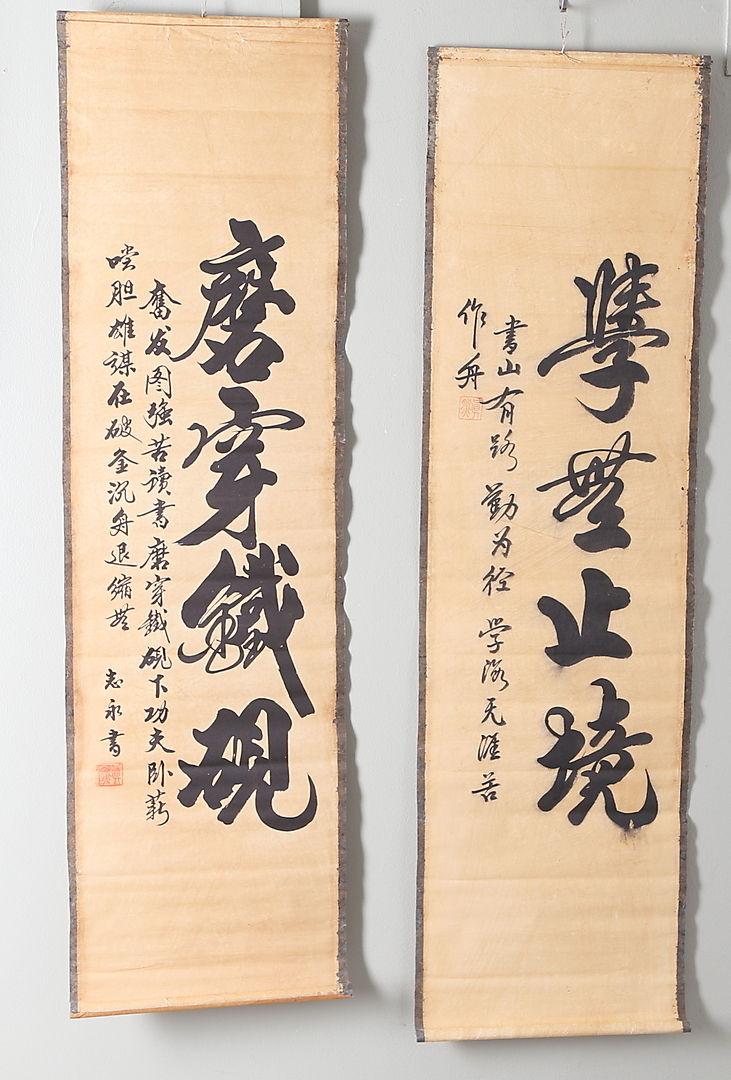 學無止境
书山有路勤为径学海无涯苦
作舟
磨穿鐵硯
奮发图强苦读書磨穿鐵硯下功夫卧薪
嘗胆雄謀在破釜沉舟退缩無
志永書